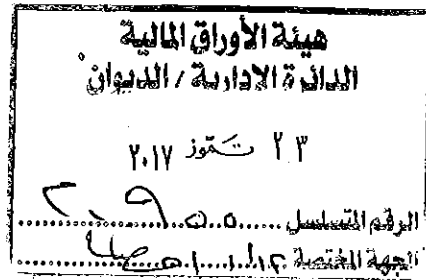 هيئة الأوراق المالية
الدائرة الادارية / الديوان
٢٣ تموز ٢٠١٧
الرقم المتسلسل
الجهة المختصة